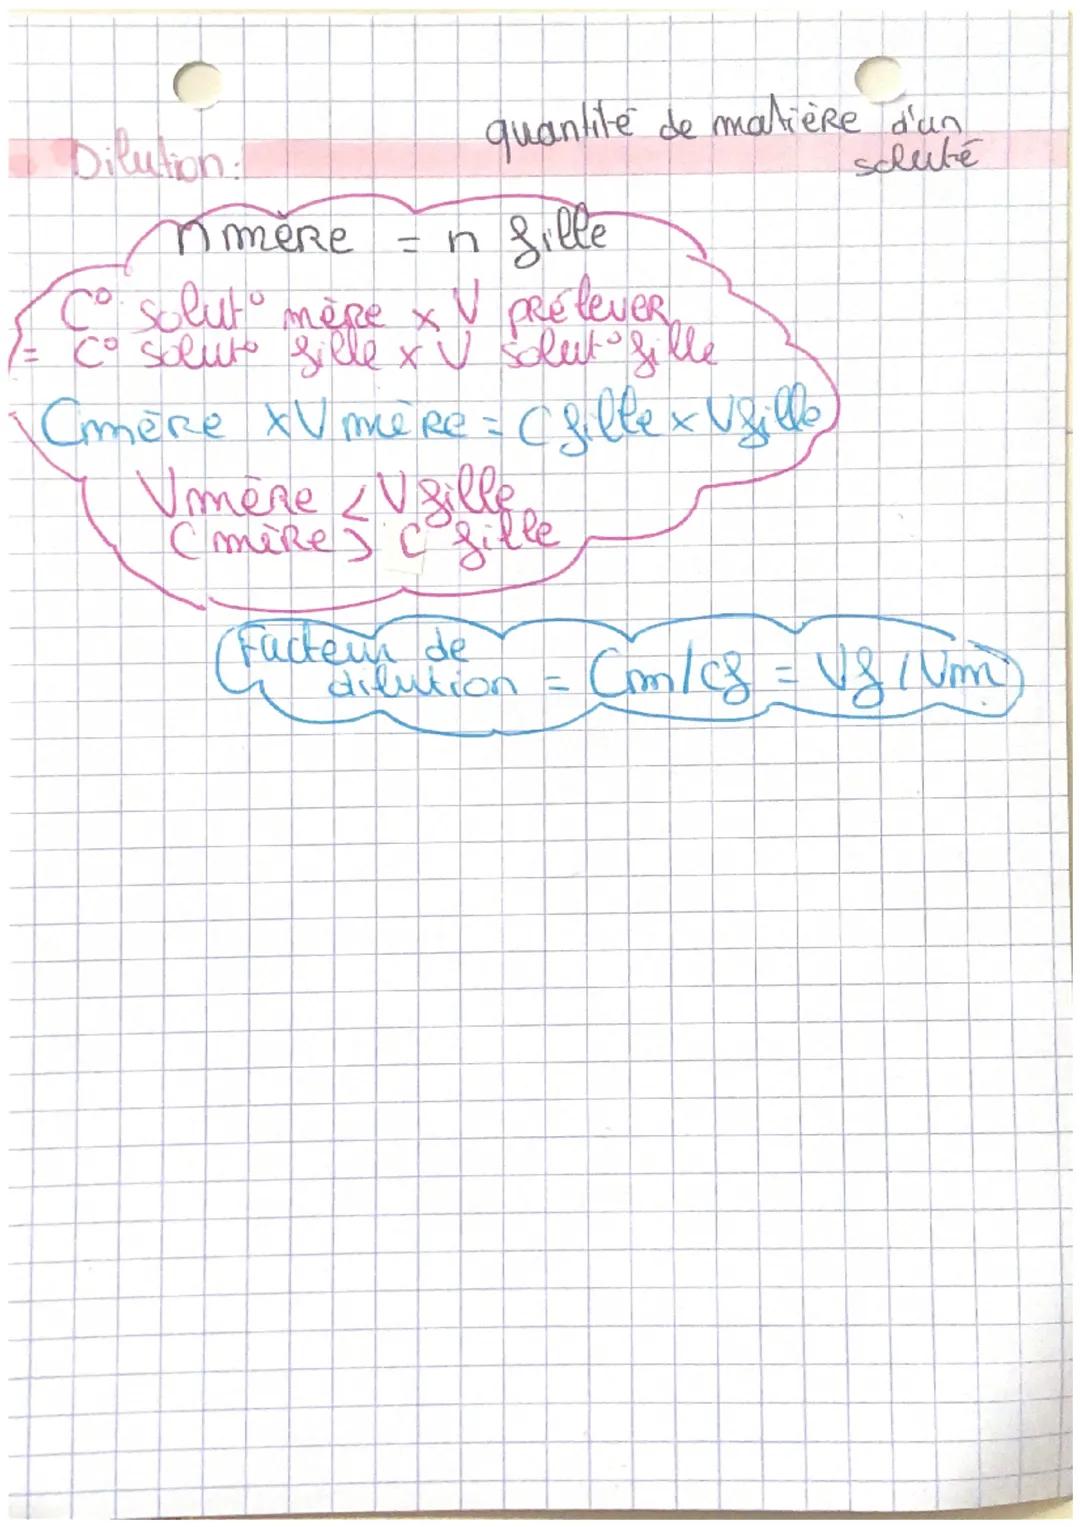 quantité de matière d'un
soluté
Dilution :
n mère = n fille
C° solut° mère x V prélever
= C° solut° fille x V solut° fille
Cmère x V mère = C fille x V fille
Vmère < V fille
C mère > C fille
Facteur de
dilution = Cm/cf = Vf/Vm